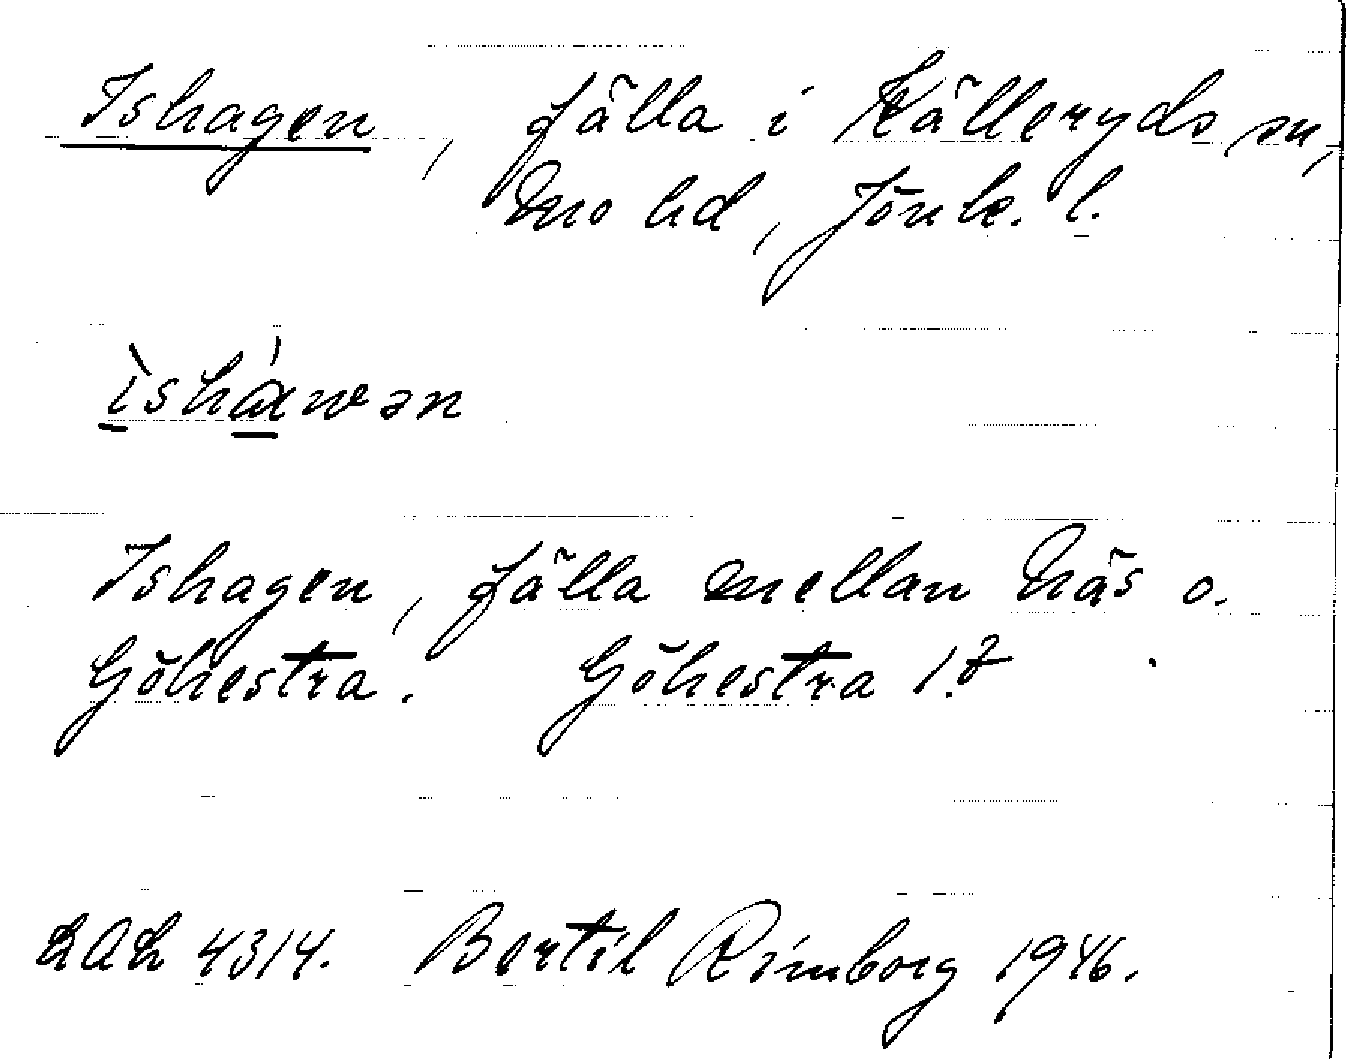 Ishagen, fälla i Källeryds sn,
Mo hd, Jönk. l.
ìsháwən
Ishagen, fälla mellan Näs o.
Göhestra. Göhestra 1:7
LAL 4314. Bertil Rimborg 1946.